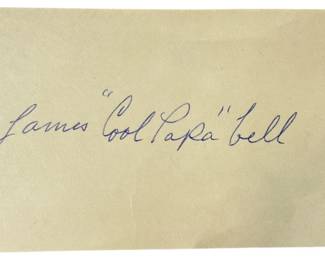 James "Cool Papa" Bell